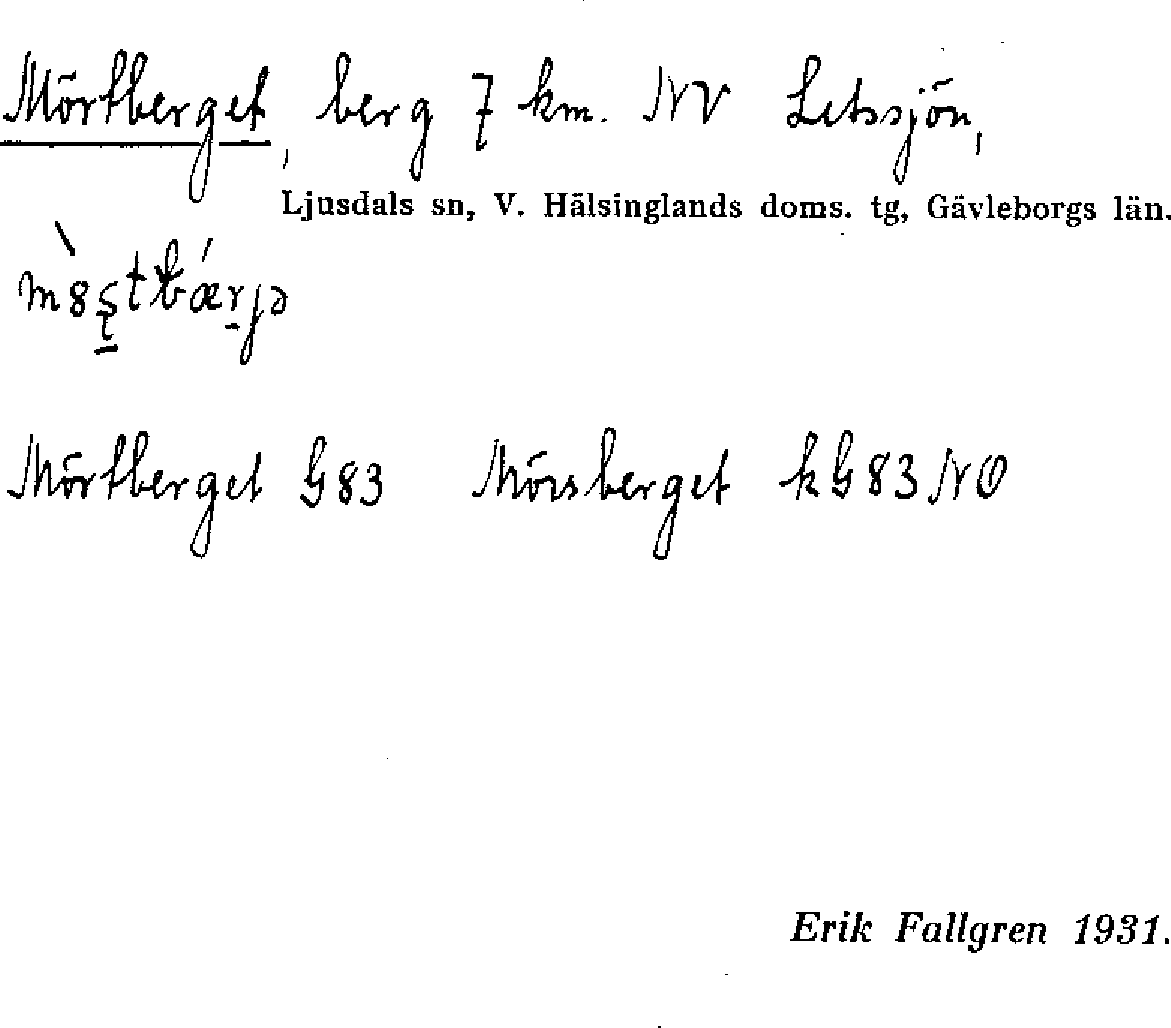 Mörtberget, berg 7 km. NV Letssjön,
Ljusdals sn, V. Hälsinglands doms. tg, Gävleborgs län.
Mörtberget G83 Mörsberget kG83NO
Erik Fallgren 1931.